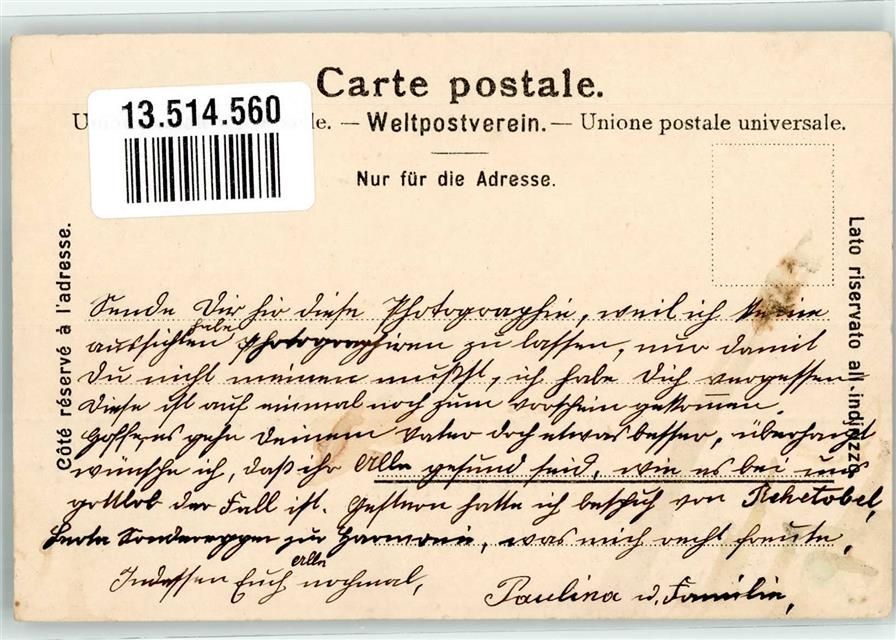 Carte postale.
13.514.560
le. — Weltpostverein. — Unione postale universale.
Nur für die Adresse.
Côté réservé à l'adresse.
Lato riservato all'indirizzo
Sende Dir hir diese Photographie, weil ich keine
aussichten habe photographiren zu lassen, nur damit
Du nicht meinen mußt, ich habe Dich vergessen
Diese ist auf einmal noch zum vorschein gekommen.
Hoffe, es gehe Deinem Vater doch etwas besser, überhaupt
wünsche ich, daß ihr Alle gesund seid, wie es bei uns
gottlob der Fall ist. Gestern hatte ich besuch von Rehetobel,
Sonderegger zur Harmonie, was mich recht freute,
Indessen Euch Alle nochmal,
Paulina u. Familie,